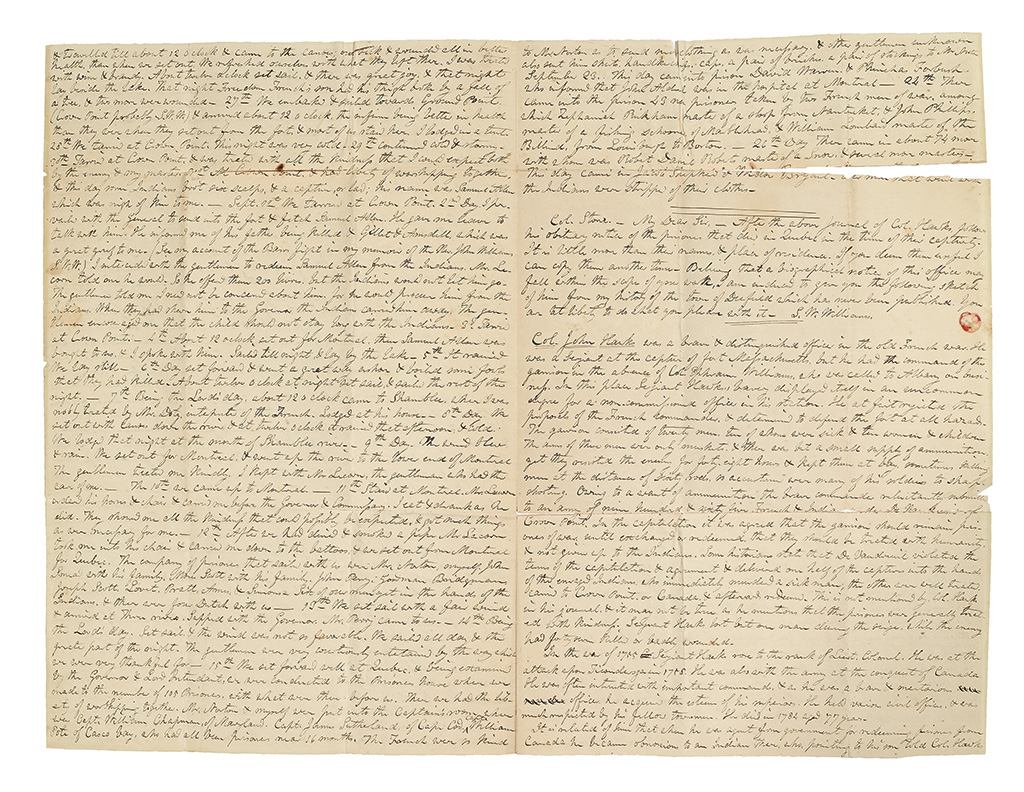 & travelled till about 12 o clock & came to the canoes, our sick & wounded all in better
health, than when we set out. We refreshed ourselves with what they left there. I was treated
with wine & brandy. About twelve o'clock set said, & there was great joy, & that night
lay beside the Lake. That night Lieutenant French's son had his thigh broke by a fall of
a tree, & two more were wounded — 27th We embarked & sailed towards Ground Point.
(Crown Point probably S.W.W.) & arrived about 12 o clock, the infirm being better in health
than they were when they set out from the fort, & most of us tired here. I lodged in a tent.
28th We tarried at Crown Point. This night was very cold. 29th continued cold & stormy.
30th Tarried at Crown Point, & was treated with all the kindness that I could expect both
by the enemy & my masters. 31st At Crown Point & had liberty of worshipping together
& this day nine Indians brot six scalps, & a captive, or lad; this name was Samuel Allen
which was nigh of kin to me. — Sept. 1st We tarried at Crown Point. 2nd Da. I pre-
vailed with the General to send into the fort & fetch Samuel Allen. He gave me leave to
talk with him. He informed me of his father being killed & Gillet & Amsdell which was
a great grief to me. (See my account of the Bars fight in my memoir of the Rev. John Williams
S.W.W.) I intreated with the gentlemen to redeem Samuel Allen from the Indians. Mr. La-
corn told me he would. So he offered them 200 livres, but the Indians would not let him go.
The gentlemen told me I need not be concerned about him, for he would procure him from the
Indians. When they had shown him to the Governor the Indians carried him away. The gen-
tlemen encouraged me that the child should not stay long with the Indians. 3d Tarried
at Crown Point. — 4th About 12 o clock set out for Montreal, then Samuel Allen was
brought to us, & I spoke with him. Sailed till night & lay by the lake. — 5th It rained
We lay still. — 6th Day set forward & went a great way ashore & boiled some fowls
that they had killed. About twelve o'clock at night set said, & sailed the rest of the
night. — 7th Being the Lord's day, about 12 o clock came to Shamblee, where I was
nobly treated by Mr. Doty interpreter of the French. Lodged at his house. — 8th Day We
set out with canoes down the river & at twelve o'clock it rained that afternoon, & cold.
We lodged that night at the mouth of Shamblee river. — 9th Day. The wind blew
& rain. We set out for Montreal, & went up the river to the lower end of Montreal
The gentlemen treated me kindly. I kept with Mr. Lacorn, the gentleman who had the
care of me. — The 10th we came up to Montreal. — 11th Staid at Montreal. Mr. Lacorn
ordered his horse & chair & carried me before the Governor & Commissary. I eat & drank as they
did. They showed me all the kindness that could possibly be expected, & got such things
as were necessary for me. — 12th After we had dined & smoked a pipe Mr. Lacorn
took me into his chair & carried me down to the battoes, & we set out from Montreal
for Quebec. The company of prisoners that sailed with us were Mr. Norton, myself, John
Smead with his family, Moses Scott with his family, John Perry, Goodman Bridgeman
Joseph Scott, Lovit, Pratt, Ames, & Simon &c. Six of our men yet in the hands of the
Indians, & there were four Dutch with us — 13th We set said with a fair wind
& arrived at Three rivers. Supped with the Governor. Mr. Perry came to us. — 14th Being
the Lord's day. Set said & the wind was not so favorable. We sailed all day & the
great part of the night. The gentlemen were very courteously entertained by the way which
we were very thankful for. — 15th We set forward well at Quebec, & being examined
by the Governor & Lord Intendant, we were conducted to the Prisoners house where we
made to the number of 105 Prisoners, with what were there before us. There we had the lib-
erty of worshipping together. Mr. Norton & myself were put into the Captain's room, where
were Capt. William Chapman, of Maryland, Capt. James Sutherland of Cape Cod, & William
Pote of Casco Bay, who had all been prisoners near 16 months. The French were so kind
to Mr. Norton as to send me clothing as was necessary, & other gentlemen unknown
also sent him shirts, handkerchiefs, caps, a pair of britches a pair of stockings, &c.
September 23. This day came into prison David Warren & Phinehas Forbush
who informed that John Aldrich was in the hospital at Montreal — 24th There
came into the prison 23 new prisoners taken by two French men of war, among
which Zephaniah Pinkham master of a sloop from Nantucket, & John Phillips
master of a fishing schooner of Marblehead, & William Lambert master of the
Billinda, from Louisburg to Boston. — 26th Day There came in about 74 more
with whom was Robert Daniel Roberts master of a Snow, & several more masters. —
This day came in Jacob Shepherd & Nathan
the Indians were strippe of their clothes —
Col. Stone. — My Dear Sir. — After the above journal of Col. Hawks, follows
his obituary notice of the prisoners that died in Quebec in the time of his captivity.
It is little more than the names, & place of residence. If you deem them useful I
can copy them another time. Believing that a biographical notice of this officer may
fall within the scope of your work, I am induced to give you the following sketch
of him from my history of the town of Deerfield which has never been published. You
are at liberty to do what you please with it — S. W. Williams.
Col. John Hawks was a brave & distinguished officer in the old French war. He
was a Serjeant at the capture of fort Massachusetts, but he had the command of the
garrison in the absence of Col. Ephraim Williams, who was called to Albany on busi-
ness. In this place Serjeant Hawks bravery displayed itself in an uncommon
degree for a non-commissioned officer in his station. He at first rejected the
proposals of the French commander, & determined to defend the fort at all hazard.
The garrison consisted of twenty men, ten of whom were sick & ten women & children
The arms of these men were only muskets, & there was but a small supply of ammunition
yet they resisted the enemy for forty eight hours & kept them at bay, sometimes killing
men at the distance of sixty rods, so accustomed were many of his soldiers to sharp
shooting. Owing to a want of ammunition the brave commander reluctantly submitted
to an army of nine hundred & sixty five French & Indians under De Vaudreuil of
Crown Point. In the capitulation it was agreed that the garrison should remain pris-
oners of war, until exchanged or redeemed that they should be treated with humanity
& not given up to the Indians. Some historians state that De Vaudreuil violated the
terms of the capitulation & agreement & delivered one half of the captives into the hands
of the enraged Indians, who immediately murdered a sick man, the others were well treated
carried to Crown Point, or Canada, & afterwards redeemed. This is not mentioned by Col. Hawks
in his journal, & it may not be true as he mentions that the prisoners were generally treat-
ed with kindness. Serjeant Hawks lost but one man during the seige, while the enemy
had forty seven killed or badly wounded.
In the war of 1755 Serjeant Hawks rose to the rank of Lieut. Colonel. He was at the
attack upon Ticonderoga in 1758. He was also with the army at the conquest of Canada
He was often intrusted with important commands, & as he was a brave & meritorious
officer he acquired the esteem of his superiors. He held various civil offices, & was
much respected by his fellow townsmen. He died in 1784 aged 77 years.
It is related of him that when he was agent from government for redeeming prisoners from
Canada he became obnoxious to an Indian there, who, pointing to his son told Col. Hawks